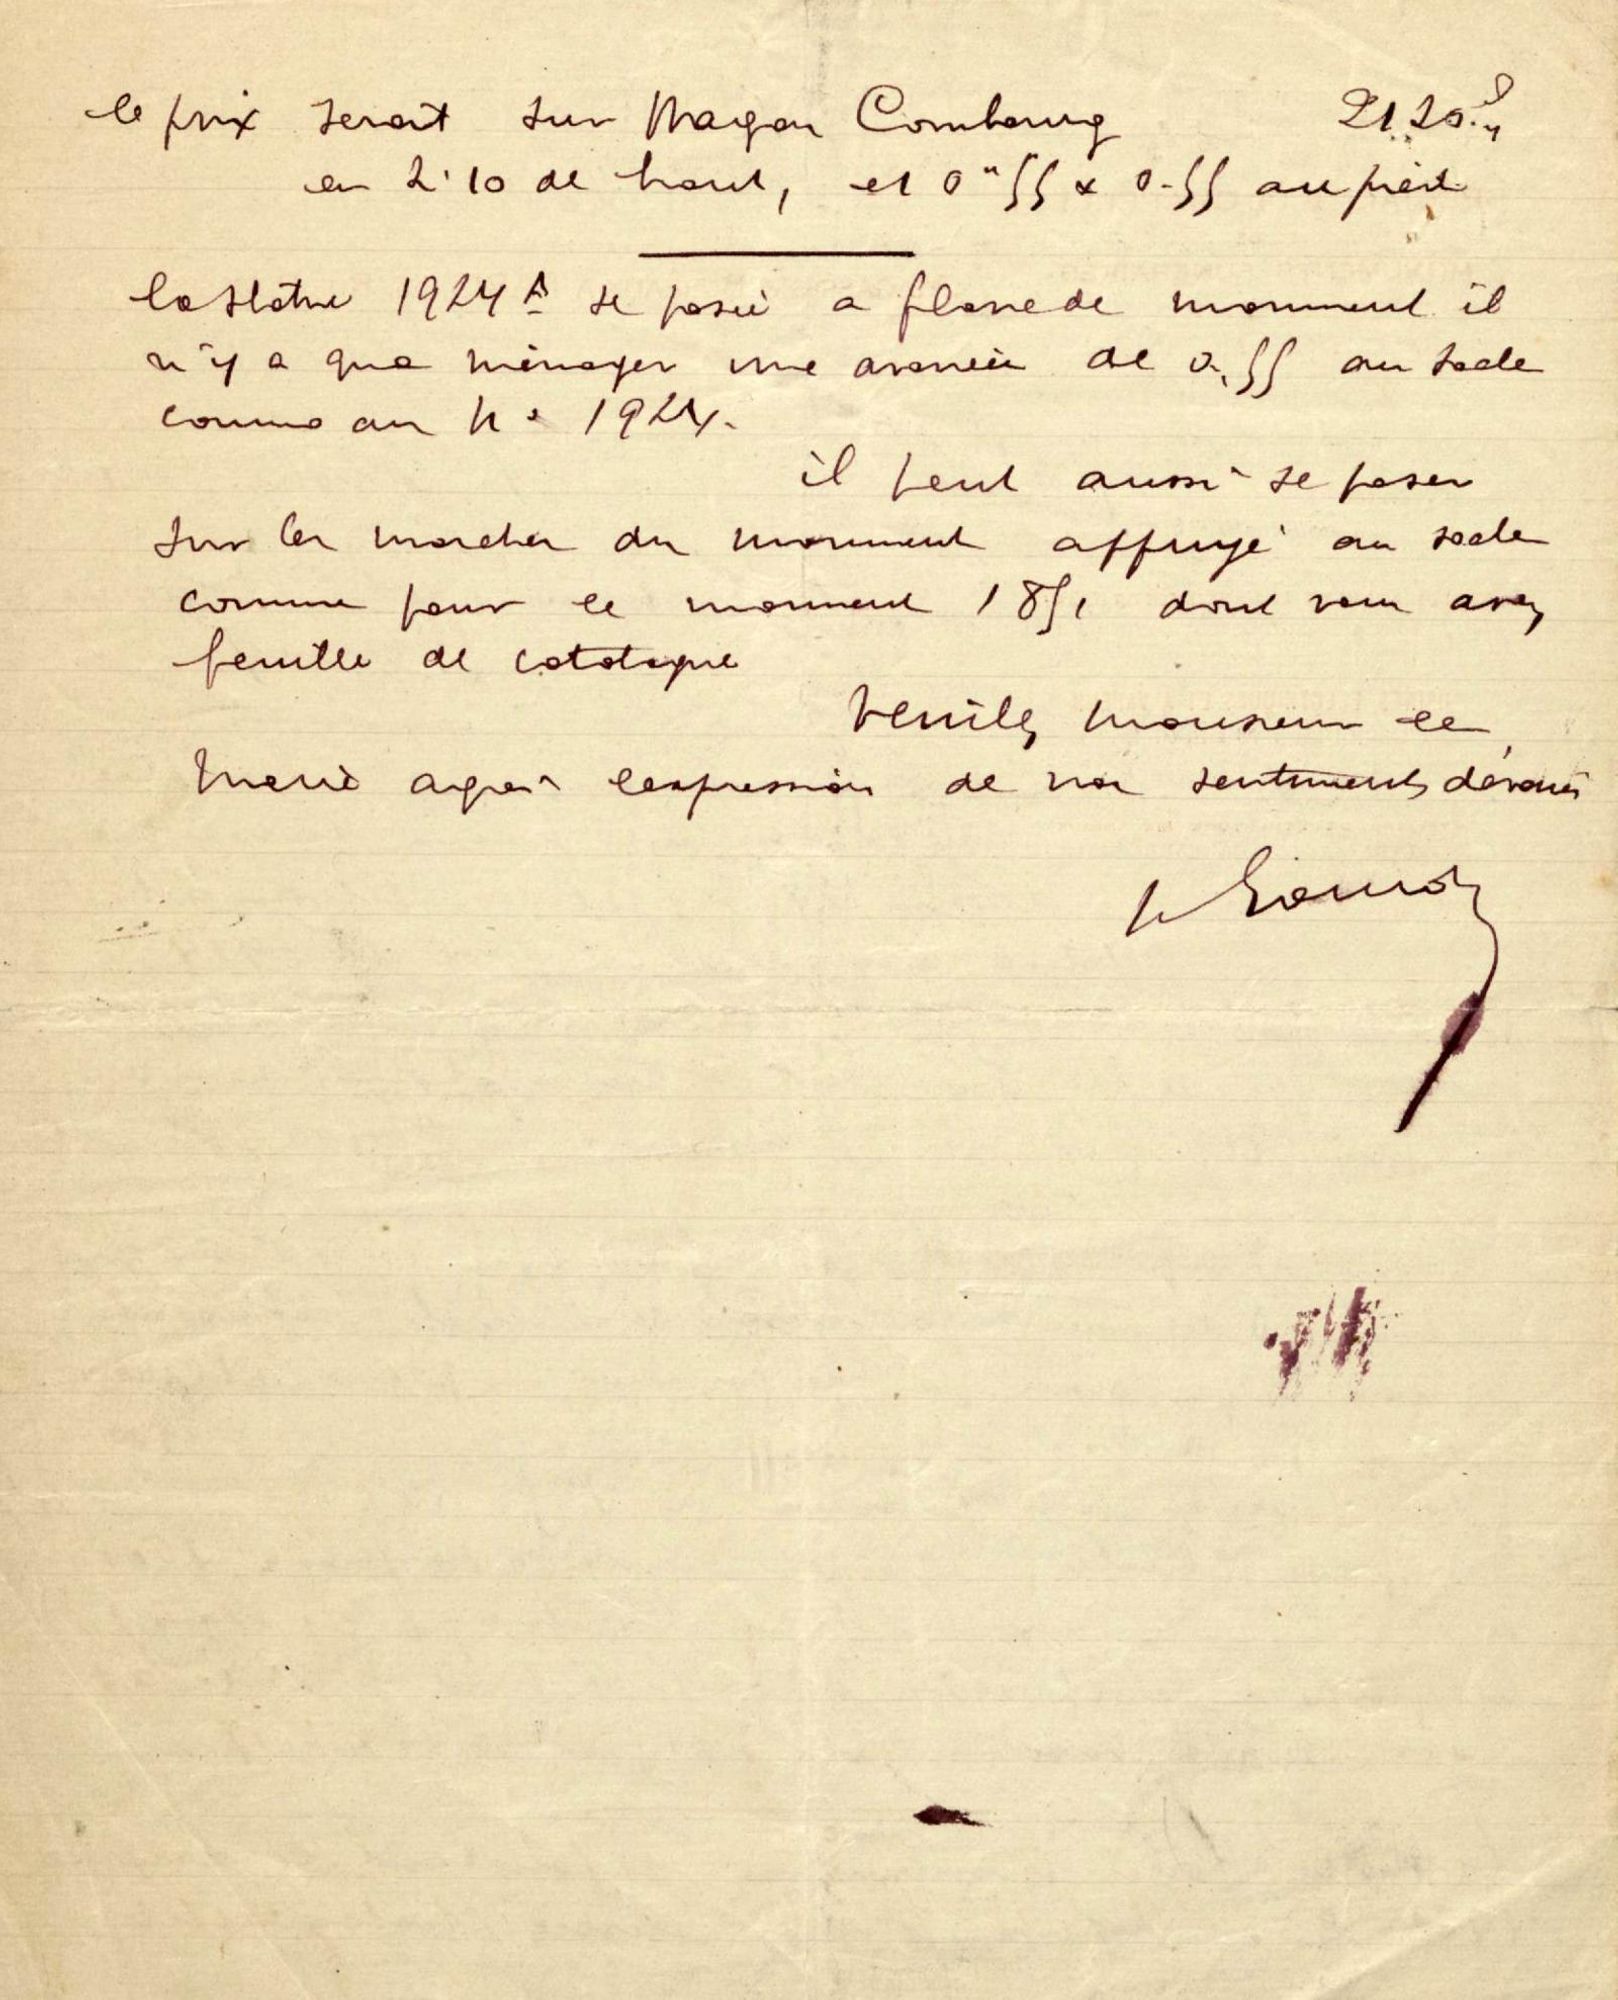 le prix serait sur Wagon Combourg 2120.
en 2.10 de haut, et 0m55 x 0.55 au pied
la statue 1924 A se pose a flanc de monument il
n'y a qua ménager une avancée de 0,55 au socle
comme au No 1924.
il peut aussi se poser
sur les marches du monument appuyé au socle
comme pour le monument 1851 dont vous avez
feuille de catalogue
Veuillez monsieur le
Maire agréer l'expression de nos sentiments dévoués